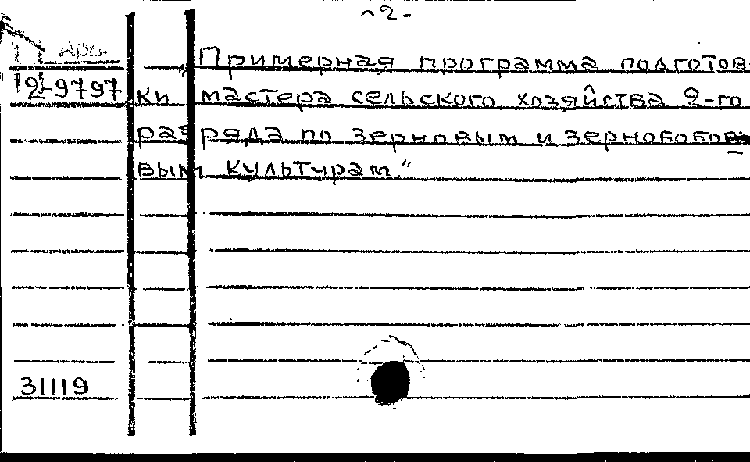 -2-
Арх
Примерная программа подготов-
12-9797 ки мастера сельского хозяйства 2-го
разряда по зерновым и зернобобо-
вым культурам."
31119